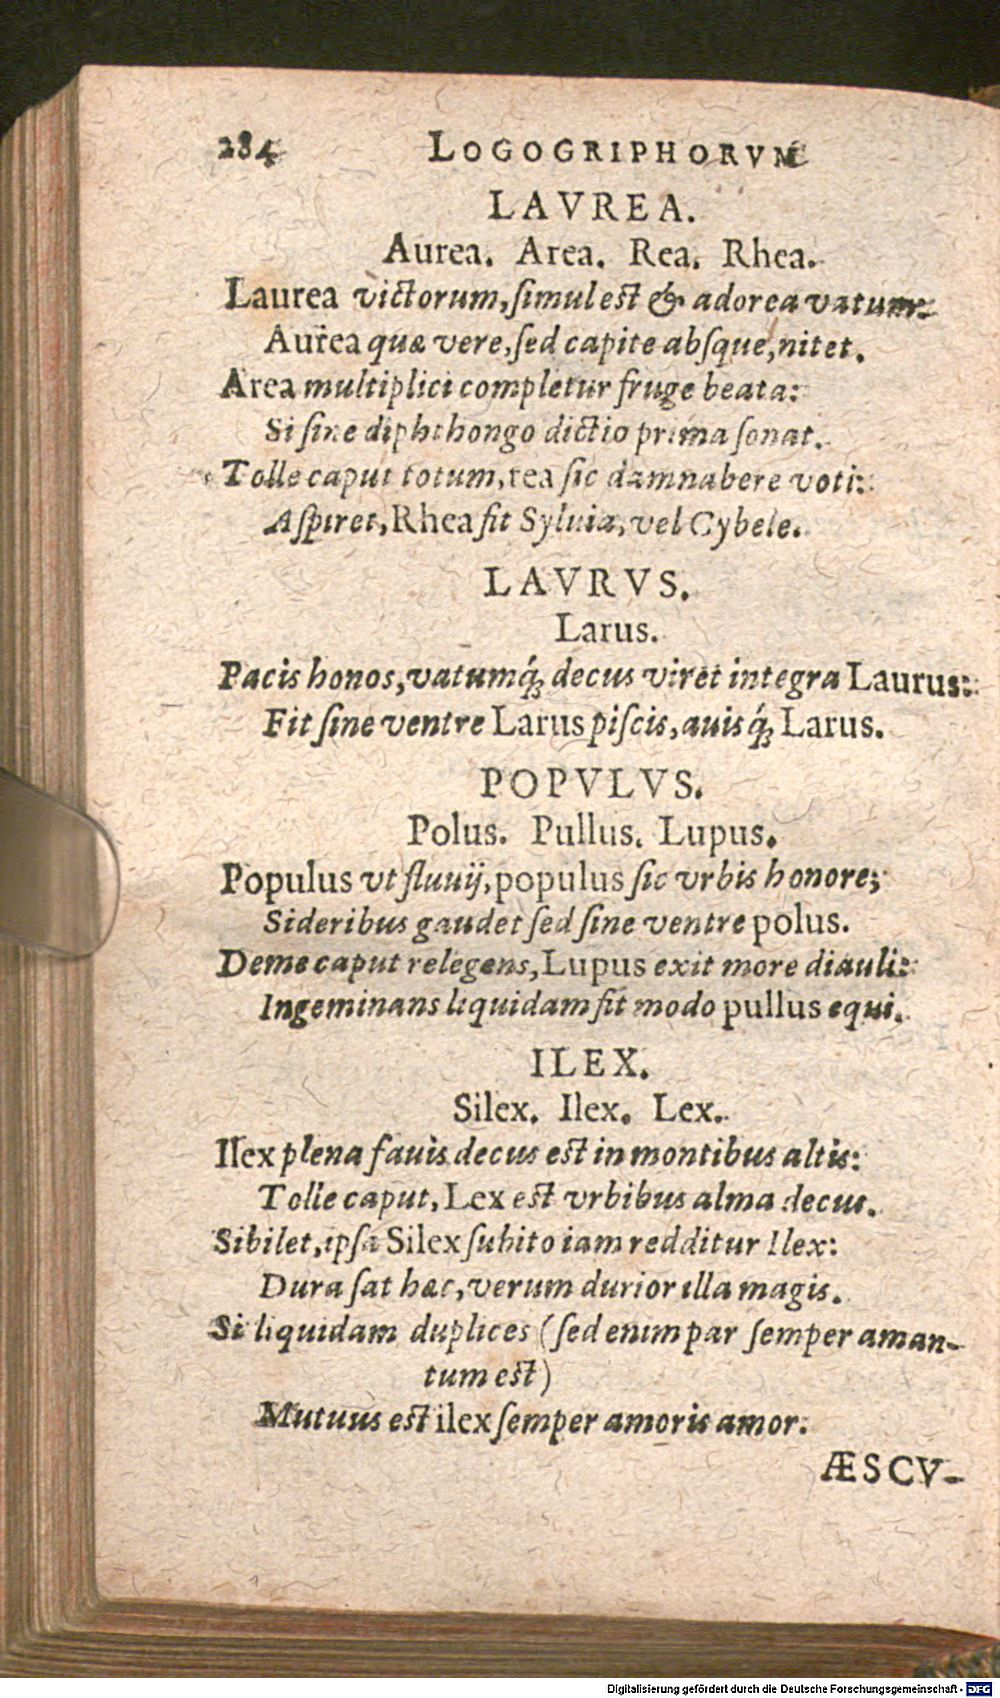 284 LOGOGRIPHORVM
LAVREA.
Aurea. Area. Rea. Rhea.
Laurea victorum, simul est & adorea vatum:
Aurea quæ vere, sed capite absque, nitet.
Area multiplici completur fruge beata:
Si sine diphthongo dictio prima sonat.
Tolle caput totum, rea sic damnabere voti:
Aspiret, Rhea fit Syluia, vel Cybele.
LAVRVS.
Larus.
Pacis honos, vatumq́; decus viret integra Laurus:
Fit sine ventre Larus piscis, auisq́; Larus.
POPVLVS.
Polus. Pullus. Lupus.
Populus vt fluuij, populus sic vrbis honore;
Sideribus gaudet sed sine ventre polus.
Deme caput relegens, Lupus exit more diauli:
Ingeminans liquidam fit modo pullus equi.
ILEX.
Silex. Ilex. Lex.
Ilex plena fauis decus est in montibus altis:
Tolle caput, Lex est vrbibus alma decus.
Sibilet, ipsa Silex subito iam redditur Ilex:
Dura sat hæc, verum durior illa magis.
Si liquidam duplices (sed enim par semper aman-
tum est)
Mutuus est ilex semper amoris amor.
ÆSCV-
Digitalisierung gefördert durch die Deutsche Forschungsgemeinschaft - DFG